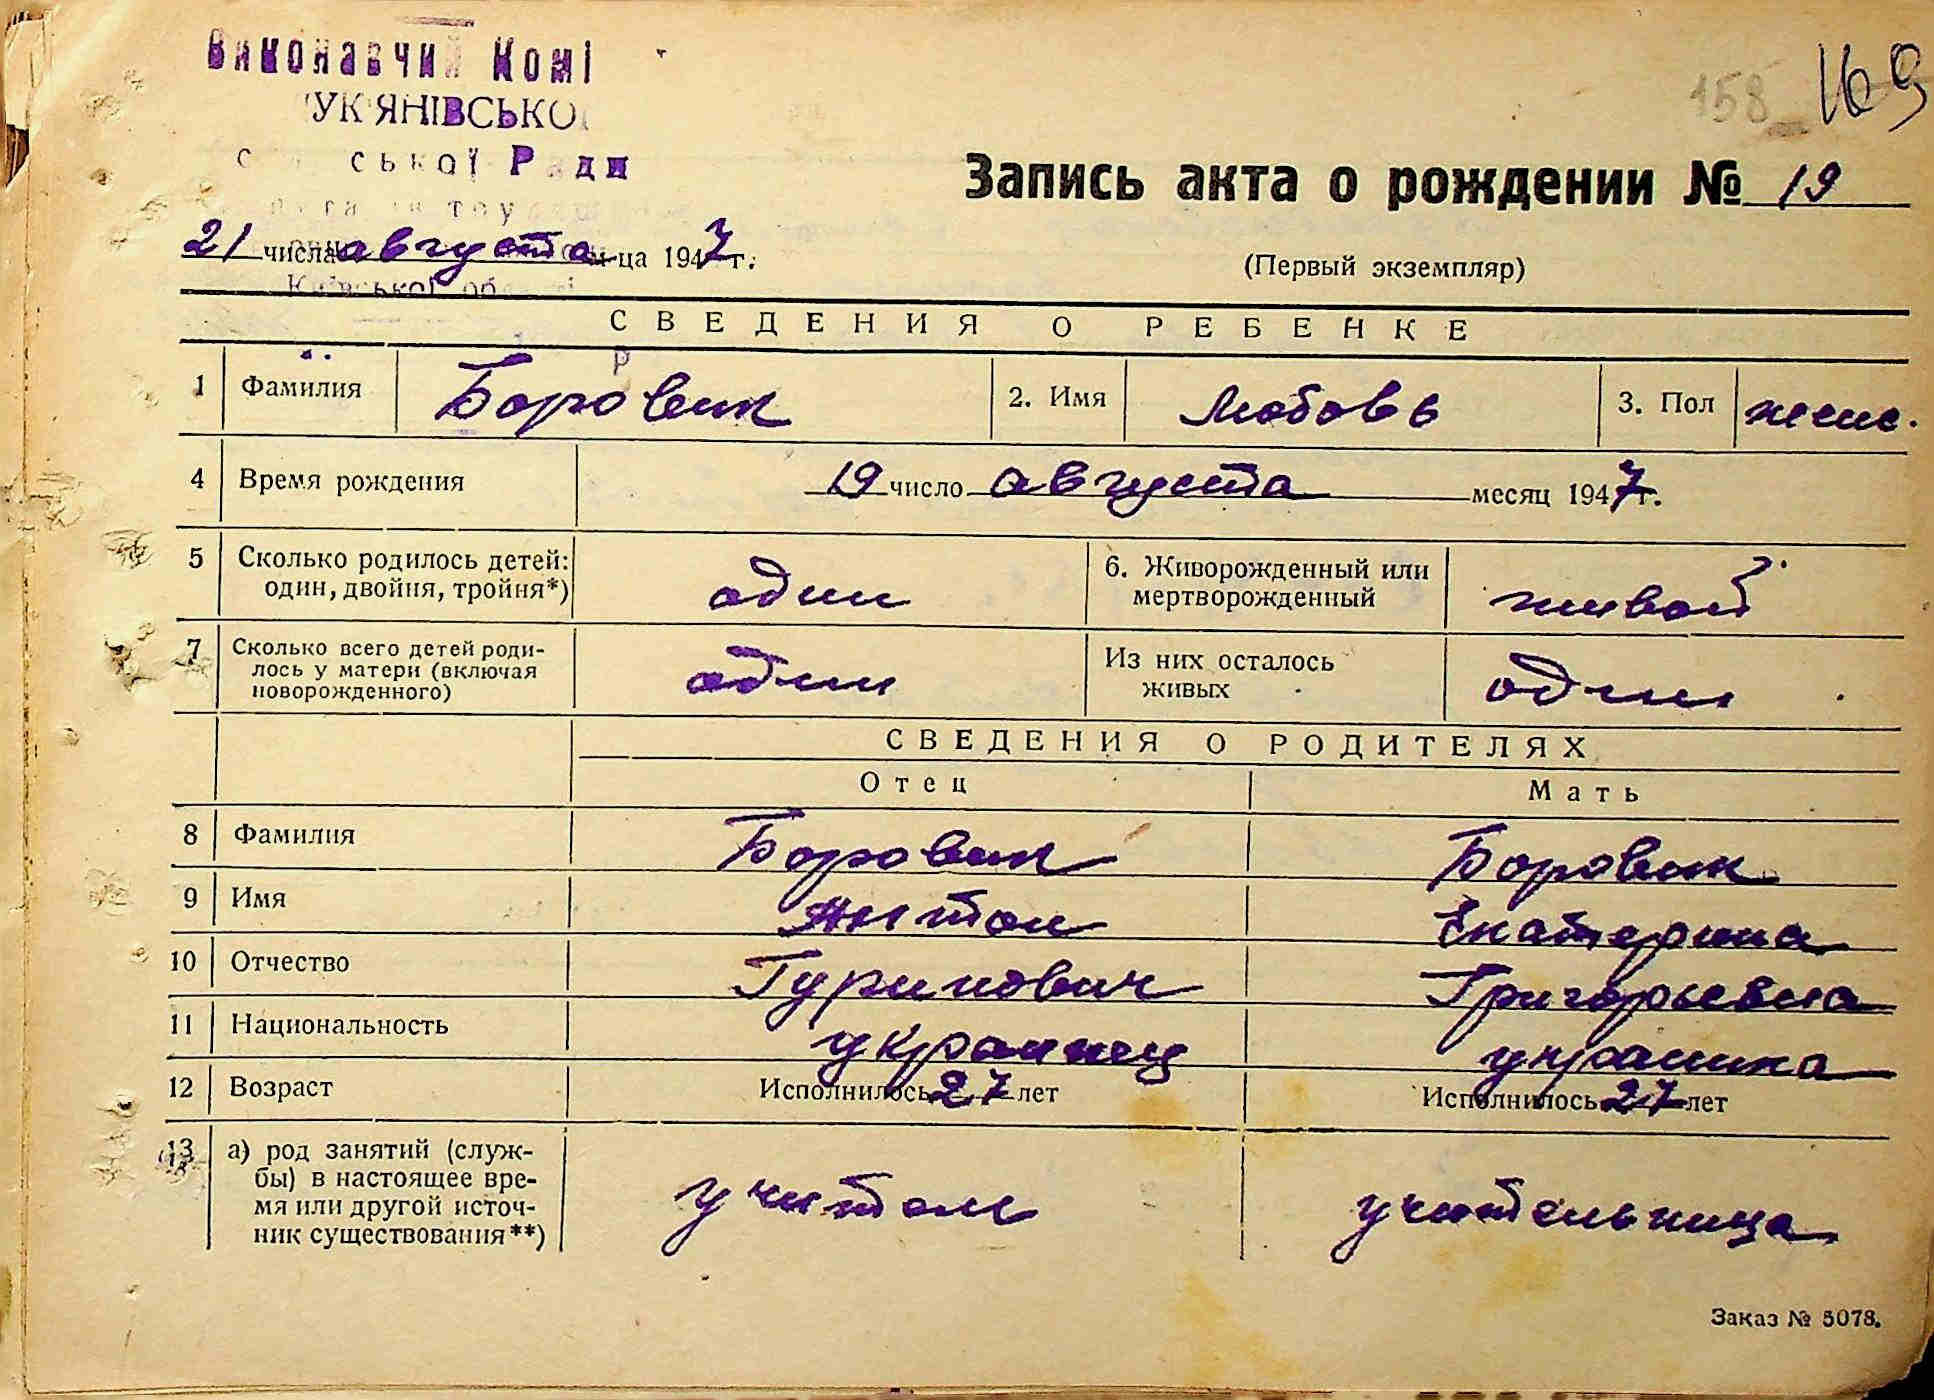 Виконавчий Комі
УК'ЯНІВСЬКО
158 169
ської Ради
Запись акта о рождении № 19
21 числа августа м-ца 1947 г.
(Первый экземпляр)
Київської об
СВЕДЕНИЯ О РЕБЕНКЕ
1 Фамилия Боровик 2. Имя Любовь 3. Пол женс.
4 Время рождения 19 число августа месяц 1947 г.
5 Сколько родилось детей: один, двойня, тройня*) один 6. Живорожденный или мертворожденный живой
7 Сколько всего детей родилось у матери (включая новорожденного) один Из них осталось живых один
СВЕДЕНИЯ О РОДИТЕЛЯХ
Отец Мать
8 Фамилия Боровик Боровик
9 Имя Антон Екатерина
10 Отчество Гуринович Григорьевна
11 Национальность украинец украинка
12 Возраст Исполнилось 27 лет Исполнилось 27 лет
13 а) род занятий (служ-
бы) в настоящее вре-
мя или другой источ-
ник существования**) учитель учительница
Заказ № 5078.